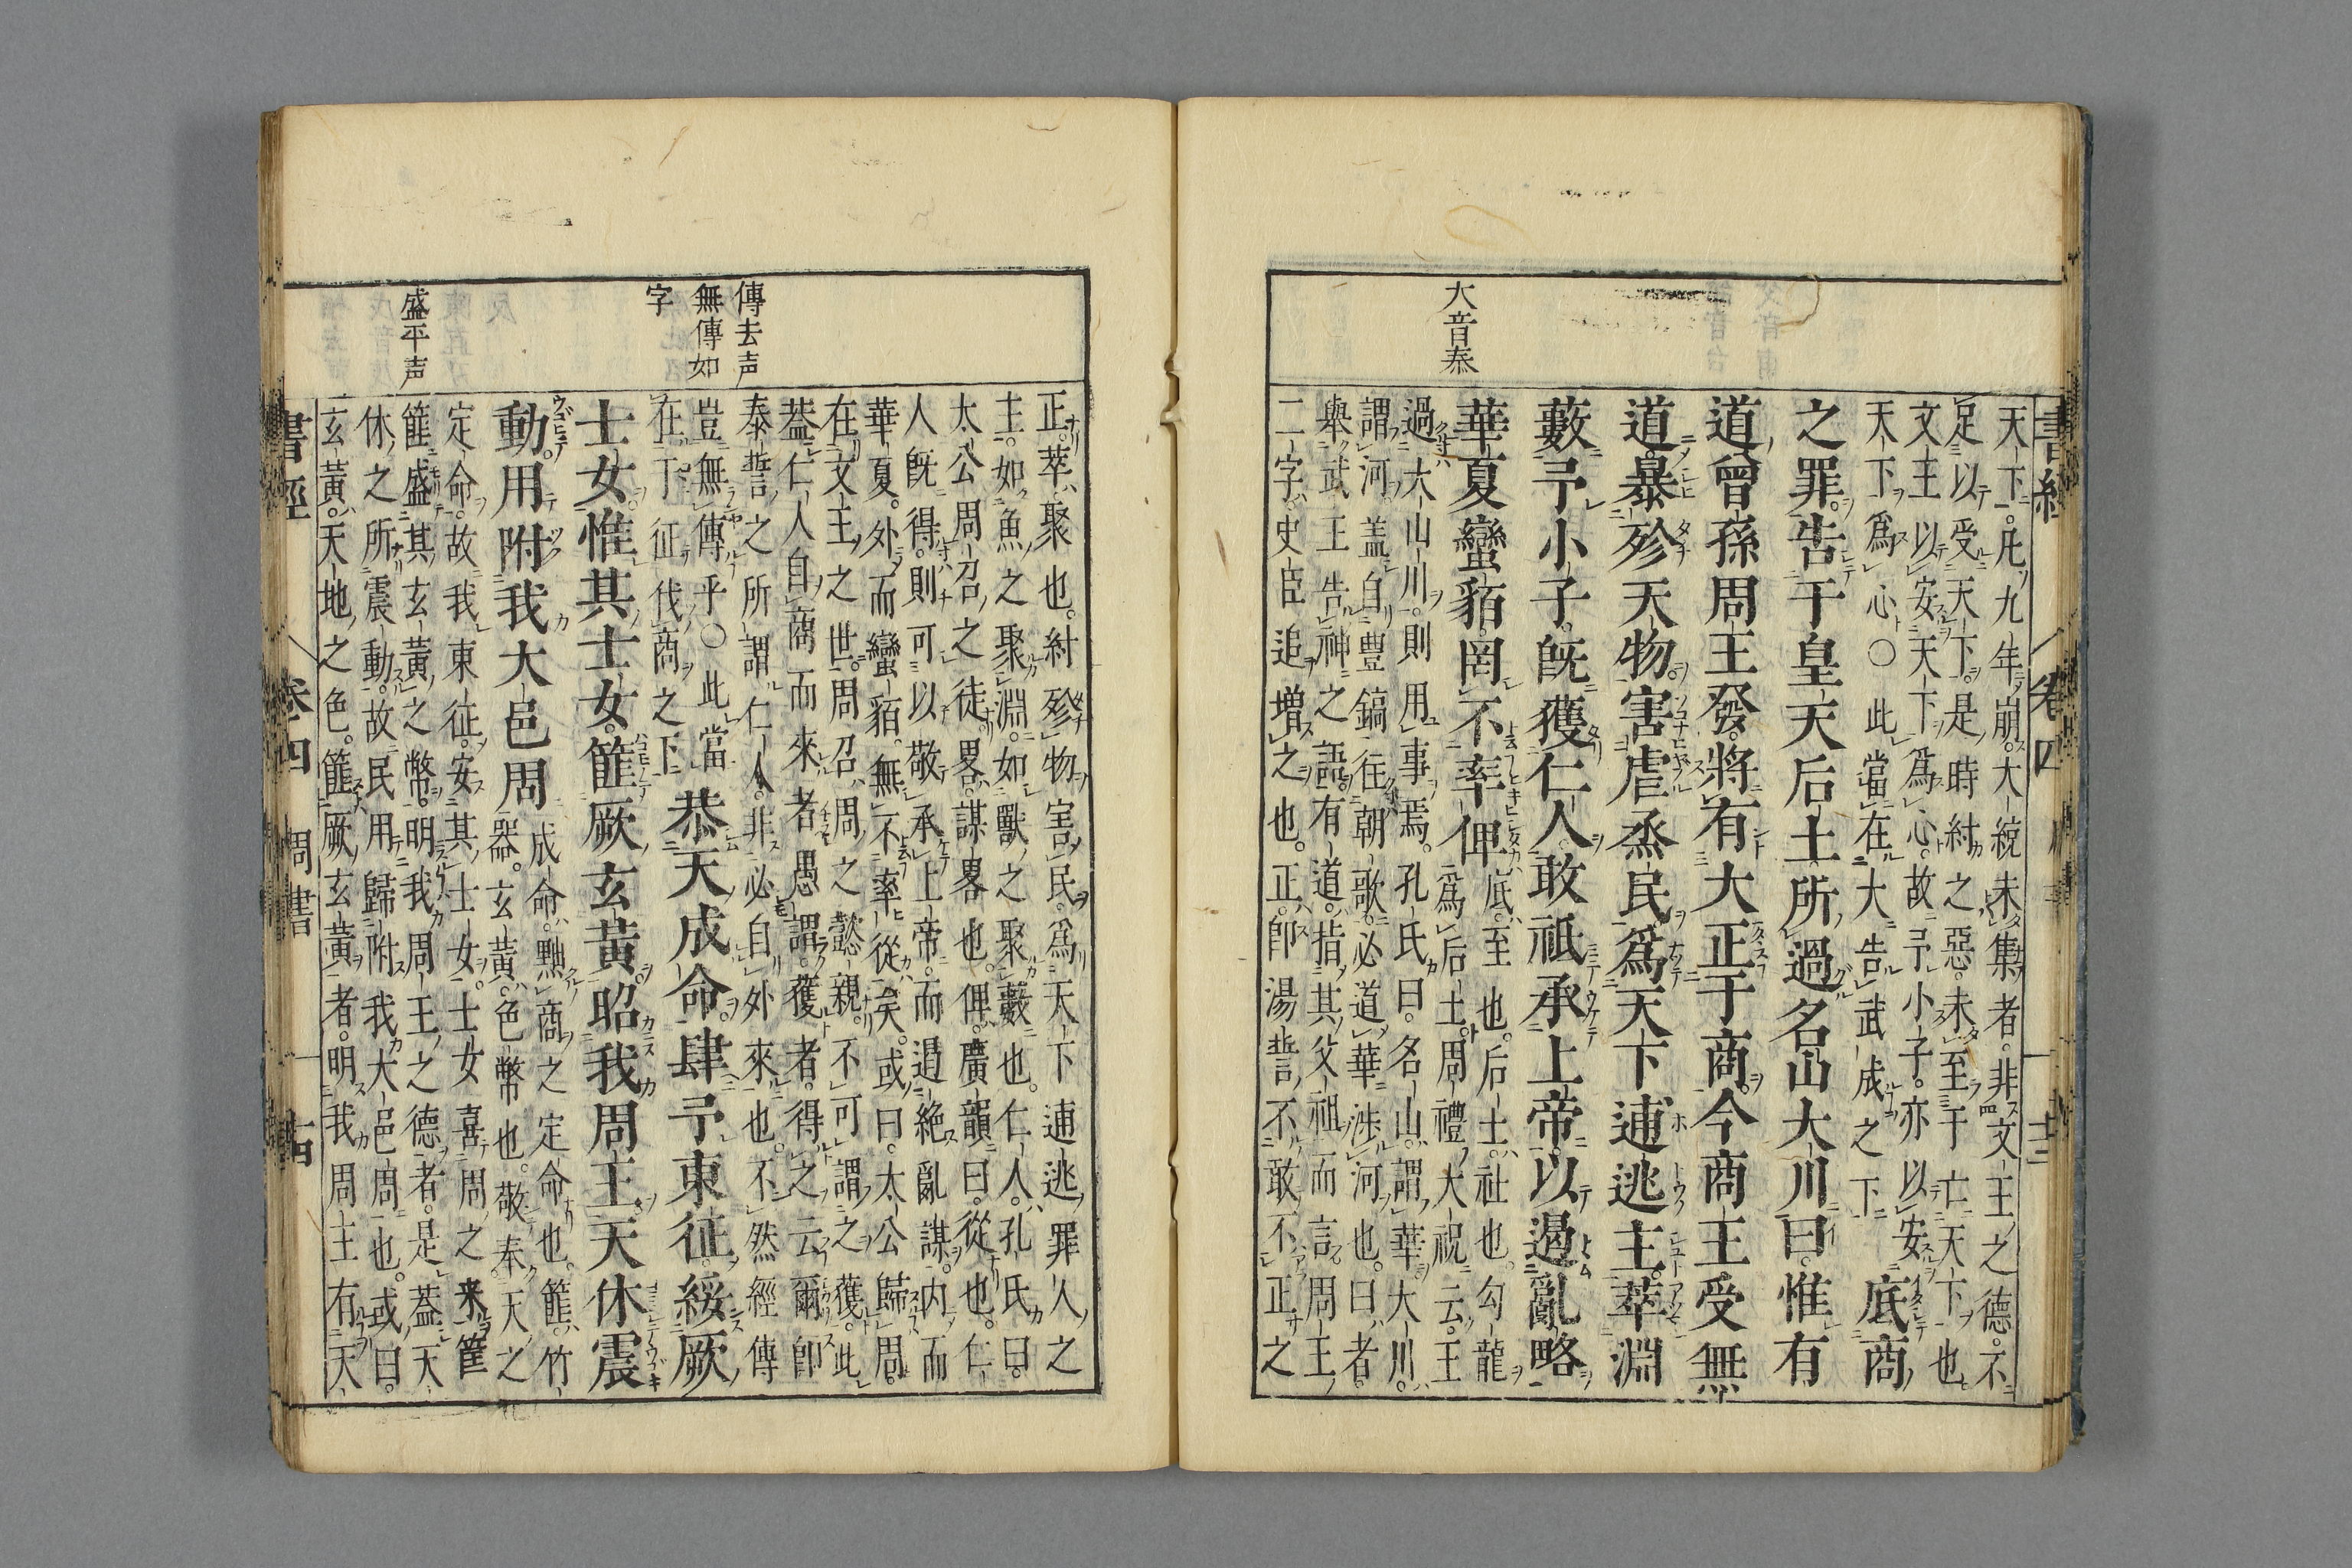 書經 卷四 周書 十三
大音泰
天下凢九年崩大統未集者非文王之德不
足以受天下是時紂之惡未至于亡天下也
文王以安天下爲心故予小子亦以安
天下爲心○此當在大告武成之下底商
之罪告于皇天后土所過名山大川曰惟有
道曾孫周王發將有大正于商今商王受無
道暴殄天物害虐烝民爲天下逋逃主萃淵
藪予小子旣獲仁人敢祗承上帝以遏亂略
華夏蠻貊罔不率俾底至也后土社也勾龍
爲后土周禮大祝云王
過大山川則用事焉孔氏曰名山謂華大川
謂河蓋自豐鎬往朝歌必道華涉河也曰者
舉武王告神之語有道指其父祖而言周王
二字史臣追增之也正卽湯誓不敢不正之
傳去声
無傳如
字
盛平声
正萃聚也紂殄物害民爲天下逋逃罪人之
主如魚之聚淵如獸之聚藪也仁人孔氏曰
太公周召之徒畧謀畧也俾廣韻曰從也仁
人旣得則可以敬承上帝而遏絶亂謀内而
華夏外而蠻貊無不率從矣或曰太公歸周
在文王之世周召周之懿親不可謂之獲此
蓋仁人自商而來者愚謂獲者得之云爾卽
泰誓之所謂仁人非必自外來也不然經傳
豈無傳乎○此當
在下征伐商之下恭天成命肆予東征綏厥
士女惟其士女篚厥玄黃昭我周王天休震
動用附我大邑周成命黜商之定命也篚竹
器玄黃色幣也敬奉天之
定命故我東征安其士女士女喜周之来筐
篚盛其玄黃之幣明我周王之德者是蓋天
休之所震動故民用歸附我大邑周也或曰
玄黃天地之色篚厥玄黃者明我周王有天
書經 卷四 周書 十四